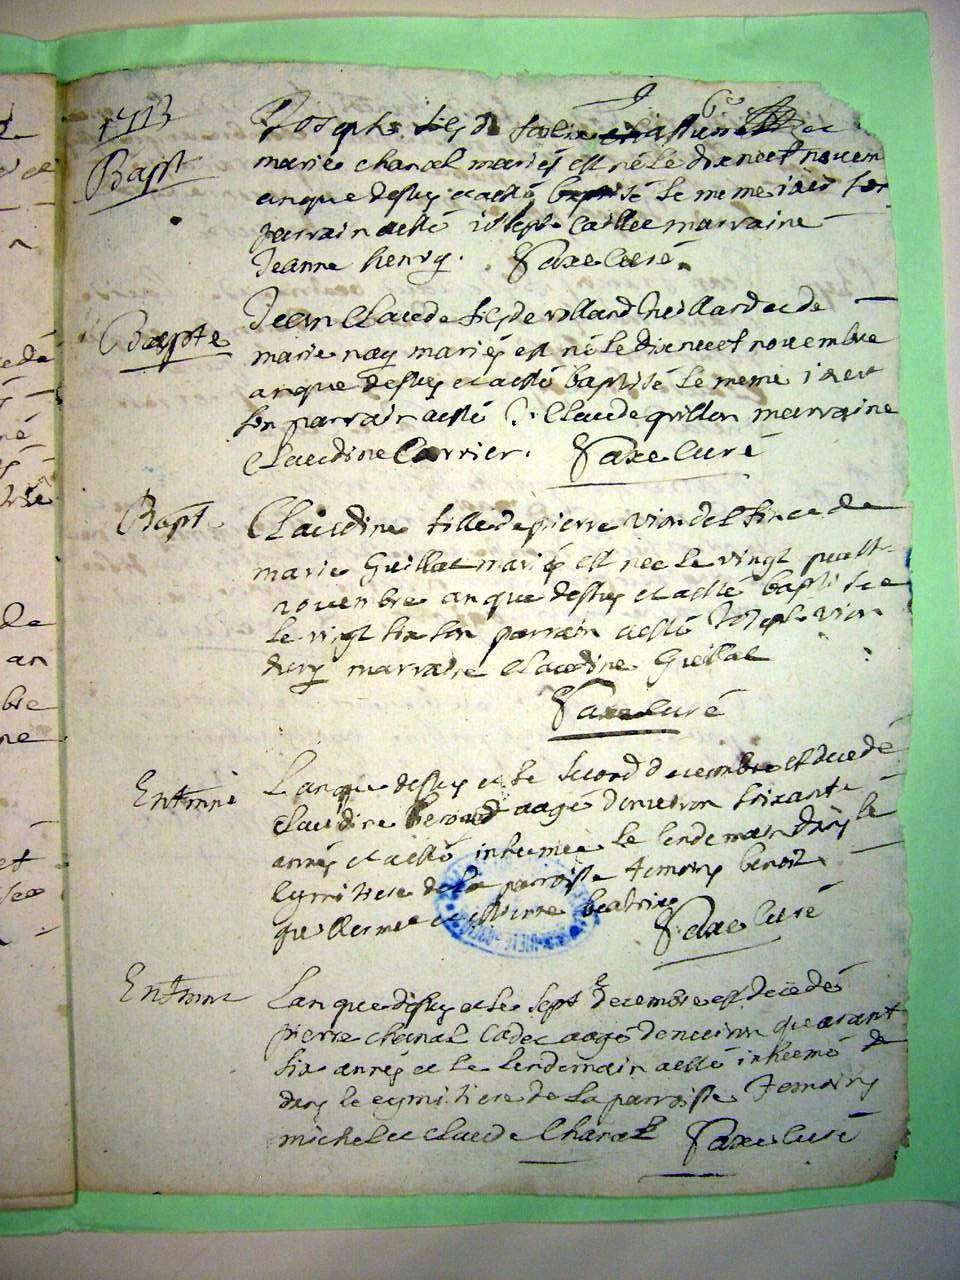 1713
Bapt
Joseph fils de et de
marie chanal mariés est né le dixneuf novem
an que dessus et a esté baptisé le meme iour son
parrain a esté ioseph Caillet marraine
Jeanne henry. Faxe Curé.
Bapte
Jean Claude fils de villard et de
marie nay mariés est né le dixneuf novembre
an que dessus et a esté baptisé le meme iour
son parrain a esté Claude quillon marraine
Claudine Carrier. Faxe Curé
Bapt
Claudine fille de pierre vion et de
marie Guillat mariés est nee le vingt
novembre an que dessus et a esté baptisée
le vingt six son parrain a esté Joseph vion
marraine Claudine Guillat
Faxe Curé
Enterme
L'an que dessus et le second decembre est decedé
Claudine beroud aagé d'environ soixante
annés et a esté inhumée le lendemain dans le
cymitiere de la parroisse temoins benoit
guillerme et beatrix Faxe Curé
Enterme
L'an que dessus et le sept decembre est decedés
pierre chanal Cadet aagé d'environ quarant
six annés et le lendemain a esté inhumé
dans le cymitiere de la parroisse Temoins
michel et claude Chanal Faxe Curé